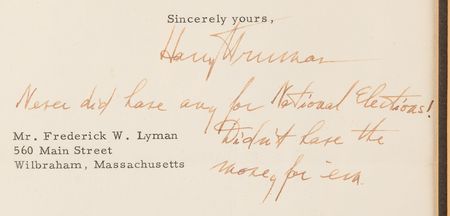 Sincerely yours,
Harry Truman
Never did have any for National Elections!
Mr. Frederick W. Lyman
Didn't have the
560 Main Street
Wilbraham, Massachusetts
money for 'em.